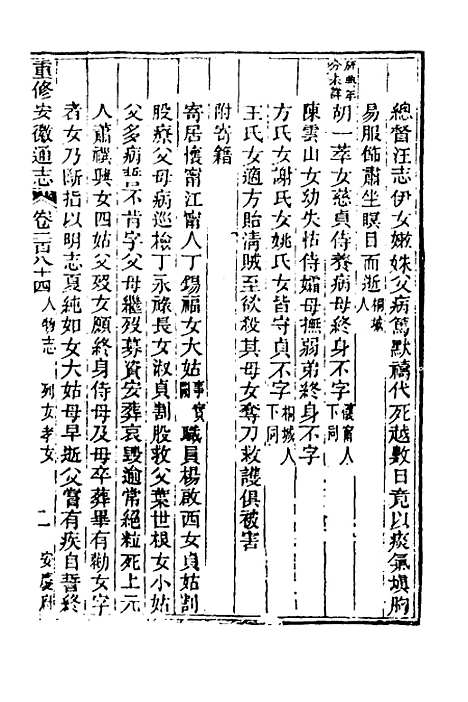 總督汪志伊女嫩姝父病篤默禱代死越數日竟以痰氣塡胸
易服飾肅坐瞑目而逝桐城人
旌典年分未詳胡一萃女慈貞侍養病母終身不字懷甯人下同
陳雲山女幼失怙侍孀母撫弱弟終身不字
方氏女謝氏女姚氏女皆守貞不字桐城人下同
王氏女適方貽清賊至欲殺其母女奪刀救護俱被害
附寄籍
寄居懷甯江甯人丁錫福女大姑事實闕職員楊敢西女貞姑割
股療父母病巡檢丁永祿長女淑貞割股救父葉世根女小姑
父多病誓不肯字父母繼歿募資安葬哀毀逾常絕粒死上元
人蕭禩興女四姑父歿女願終身侍母及母卒葬畢有勸女字
者女乃斷指以明志夏純如女大姑母早逝父嘗有疾自誓終
重修安徽通志 卷二百八十四 人物志 列女孝女 二 安慶府